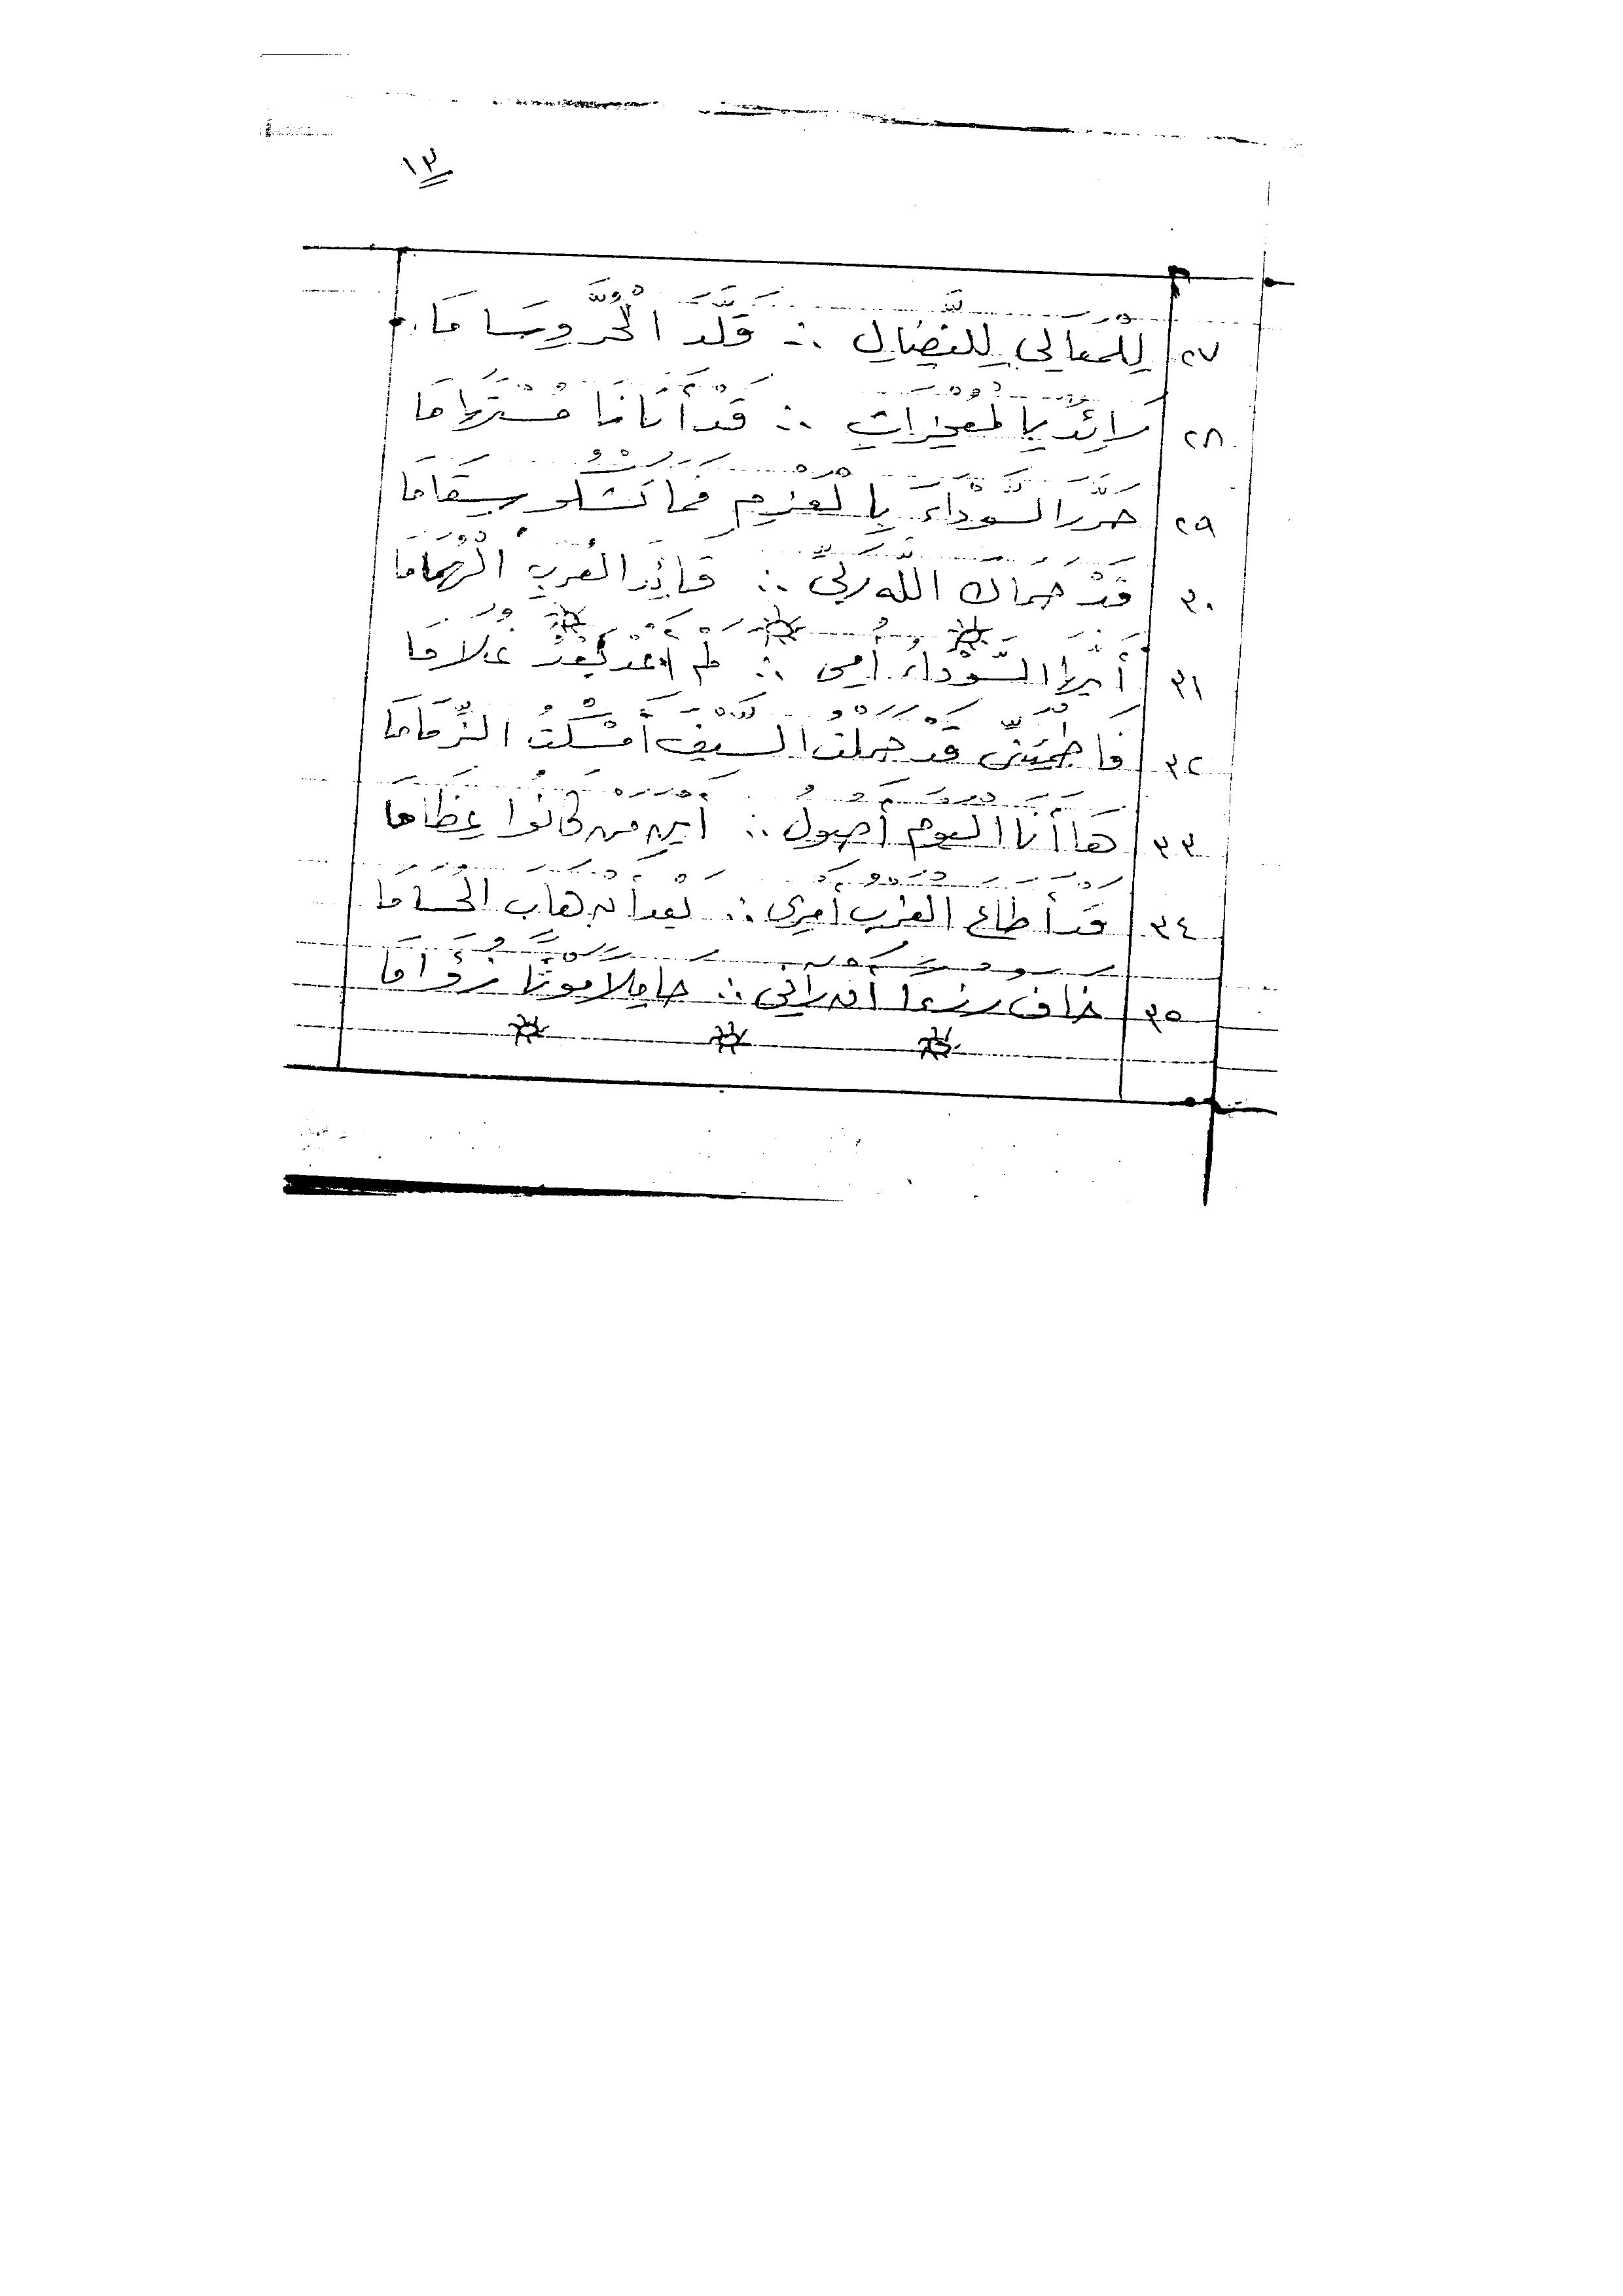 ١٣
٢٧ لِلْمَعَالِي لِلنِّضَالِ ∴ قَلَّدَ الْحُرَّ وِسَامَا
٢٨ رَائِدٌ بِالْمُعْجِزَاتِ ∴ قَدْ أَتَانَا مُسْتَهَامَا
٢٩ حَرَّرَ السَّوْدَاءَ بِالْعَزْمِ فَمَا تَشْكُو سِقَامَا
٣٠ قَدْ حَمَاكَ اللَّهُ رَبِّي ∴ قَائِدَ الْعُرْبِ الْهُمَامَا
٣١ أَيُّهَا السَّوْدَاءُ أُمِّي ∴ لَمْ أَعُدْ بَعْدُ غُلَامَا
٣٢ فَاطْمَئِنِّي قَدْ حَمَلْتُ السَّيْفَ أَمْسَكْتُ الزِّمَامَا
٣٣ هَا أَنَا الْيَوْمَ أَصُولُ ∴ أَيْنَ مَنْ كَانُوا عِظَامَا
٣٤ قَدْ أَطَاعَ الْغَرْبُ أَمْرِي ∴ بَعْدَ أَنْ هَابَ الْحُسَامَا
٣٥ خَافَ رُزْءًا أَنْ رَآنِي ∴ حَامِلًا مَوْتًا زُؤَامَا